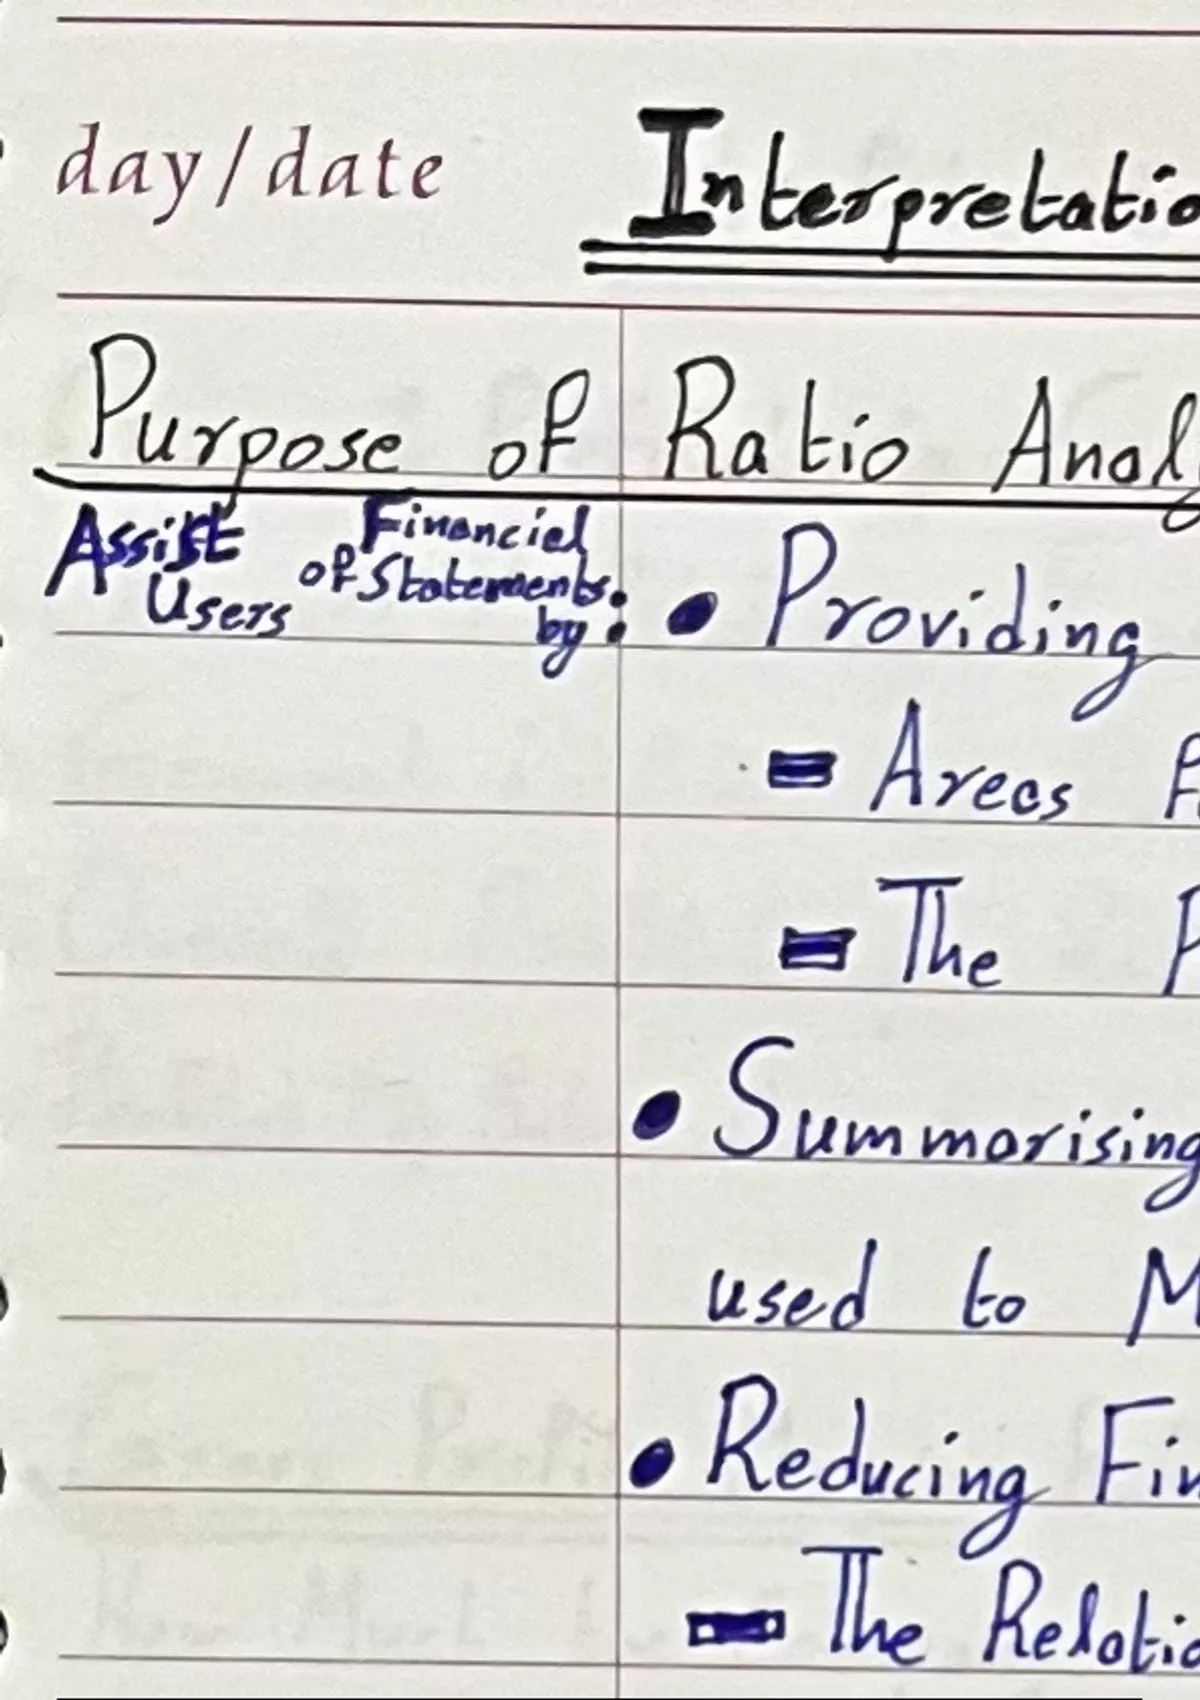 day/date Interpretatio
Purpose of Ratio Analy
Assist Users of Financial Statements by:
• Providing
= Areas F
= The P
• Summarising
used to M
• Reducing Fin
- The Relatio